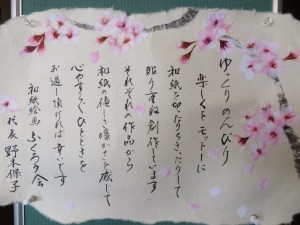 ゆっくりのんびり
楽しくをモットーに
和紙を切ったりちぎったりして
貼り重ね創作しています
それぞれの作品から
和紙の優しさ暖かさを感じて
心やすらぐひとときを
お過し頂ければ幸いです
和紙絵画 ふくろう会
代表 野木保子